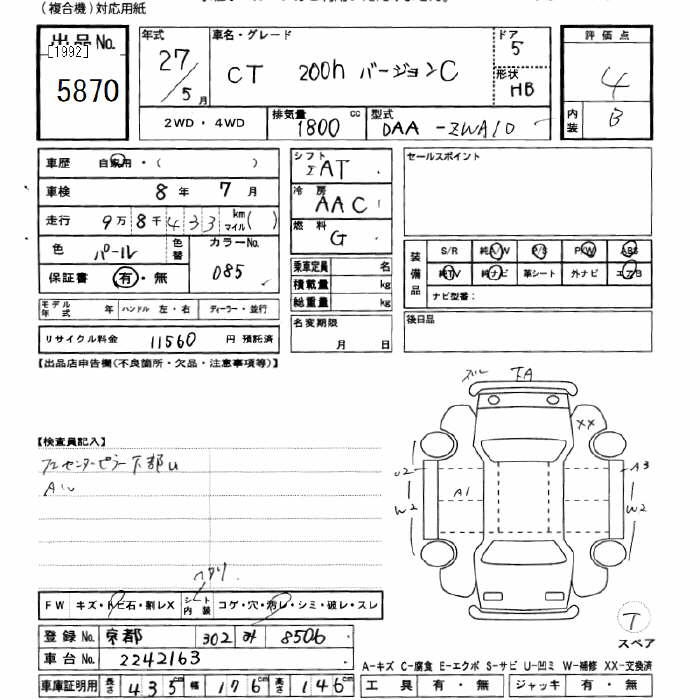 (複合機)対応用紙
出品No.
[1992]
5870
年式
27/5月
車名・グレード
CT 200h バージョンC
ドア
5
形状
HB
評価点
4
内装
B
2WD・4WD
排気量
1800cc
型式
DAA-ZWA10
車歴 自家用・( )
車検 8年 7月
走行 9万8千433 km マイル( )
色 パール 色替 カラーNo.
085
保証書 有・無
モデル年式 年 ハンドル 左・右 ディーラー・並行
リサイクル料金 11560 円 預託済
シフト
AT
冷房
AAC
燃料
G
乗車定員 名
積載量 kg
総重量 kg
名変期限
月 日
セールスポイント
装備品
S/R 純A/W P/S P/W ABS
純TV 純ナビ 革シート 外ナビ エアB
ナビ型番:
後日品
【出品店申告欄(不良箇所・欠品・注意事項等)】
【検査員記入】
センターピラー下部U
下A
XX
U2
A3
A1
W2
W2
T
スペア
FW キズ・トビ石・割レX シート内装 コゲ・穴・汚レ・シミ・破レ・スレ
ヘタリ
登録No. 京都 302 8506
車台No. 2242163
車庫証明用 長さ 435cm 幅 176cm 高さ 146cm
A-キズ C-腐食 E-エクボ S-サビ U-凹ミ W-補修 XX-交換済
工具 有・無 ジャッキ 有・無